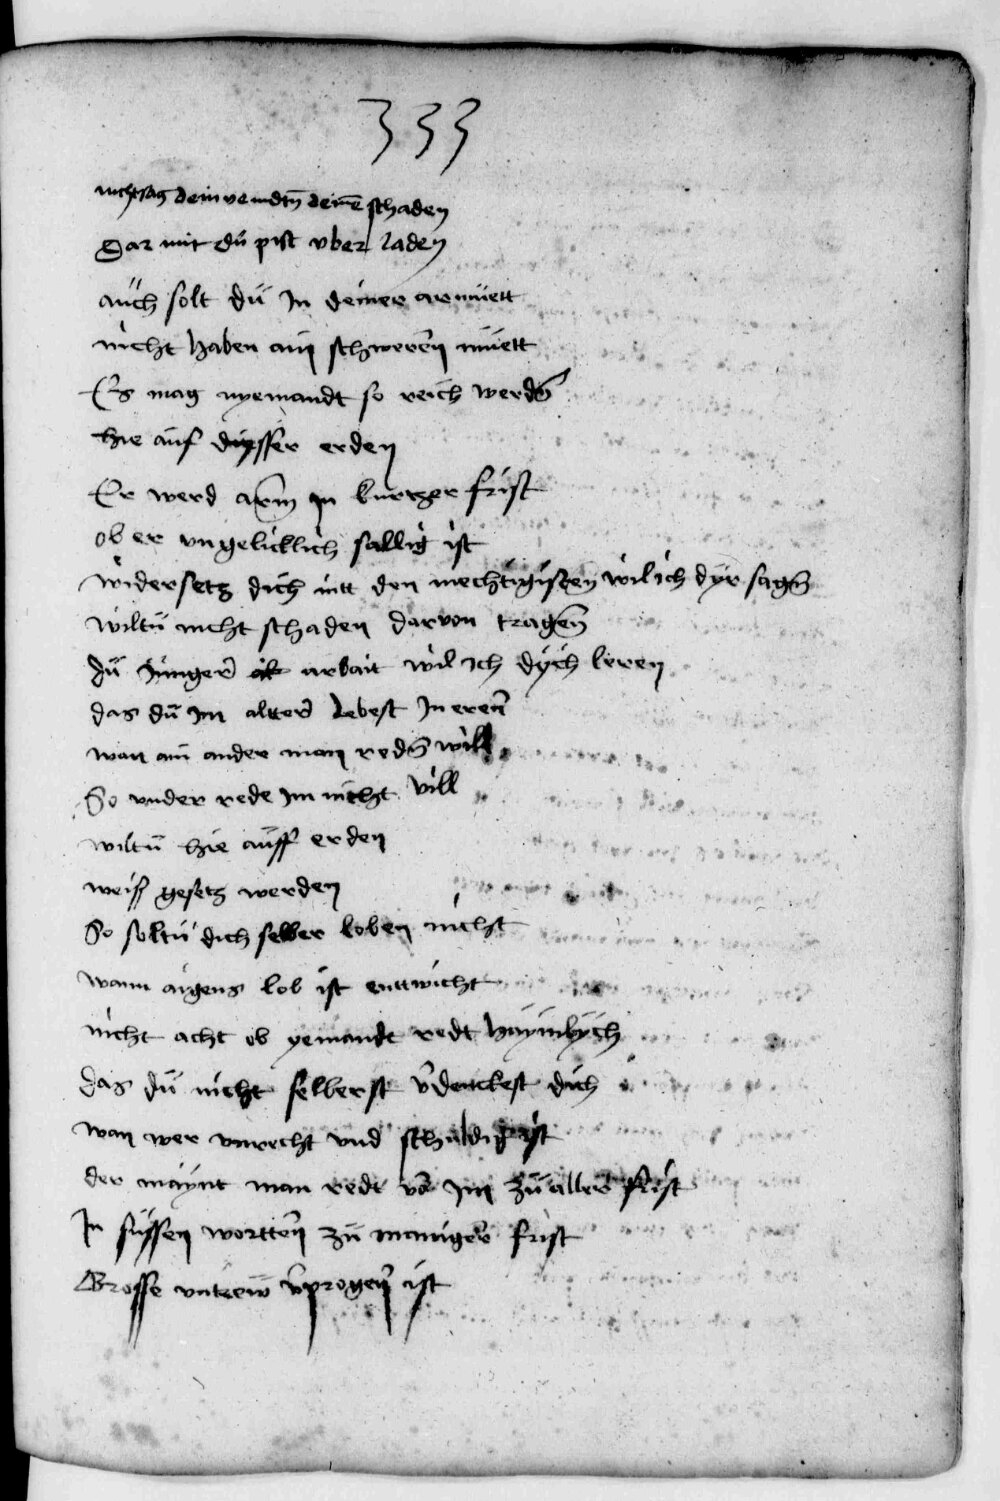 333
nicht sag dein veindtn̄ deinē schaden
Dar mit dü pist vber laden
aüch solt dü Jn deiner armüett
nicht haben ain schwerēn müett
Es mag nyemandt so reich werdn̄
hie aüf dyssēr erden
Er werd arm̄ jn kurtzer frist
ob er vngelicklich sallig ist
widersetz dich nit den mechtigistn̄ wil ich dÿr sagn̄
wiltü nicht schaden darvon tragn̄
Jn Jünger arbait wil ich dÿch leren
das dü im altter lebest Jn eren̄
wan ain ander man redn̄ will
So vnder rede im nicht vill
wiltü hie aüff erden
weiss gesetz werden
So soltü dich selber loben nicht
wann aigens lob ist enttwicht
nicht acht ob yemandt redt haÿmlÿch
das dü nicht selberst v̄denckest dich
wan wer vnrecht vnd schuldig ist
der maÿnt man redt vō im zü aller frist
Jn süssen wortten̄ zü maniger frist
Grosse vntrew v̄progen̄ ist